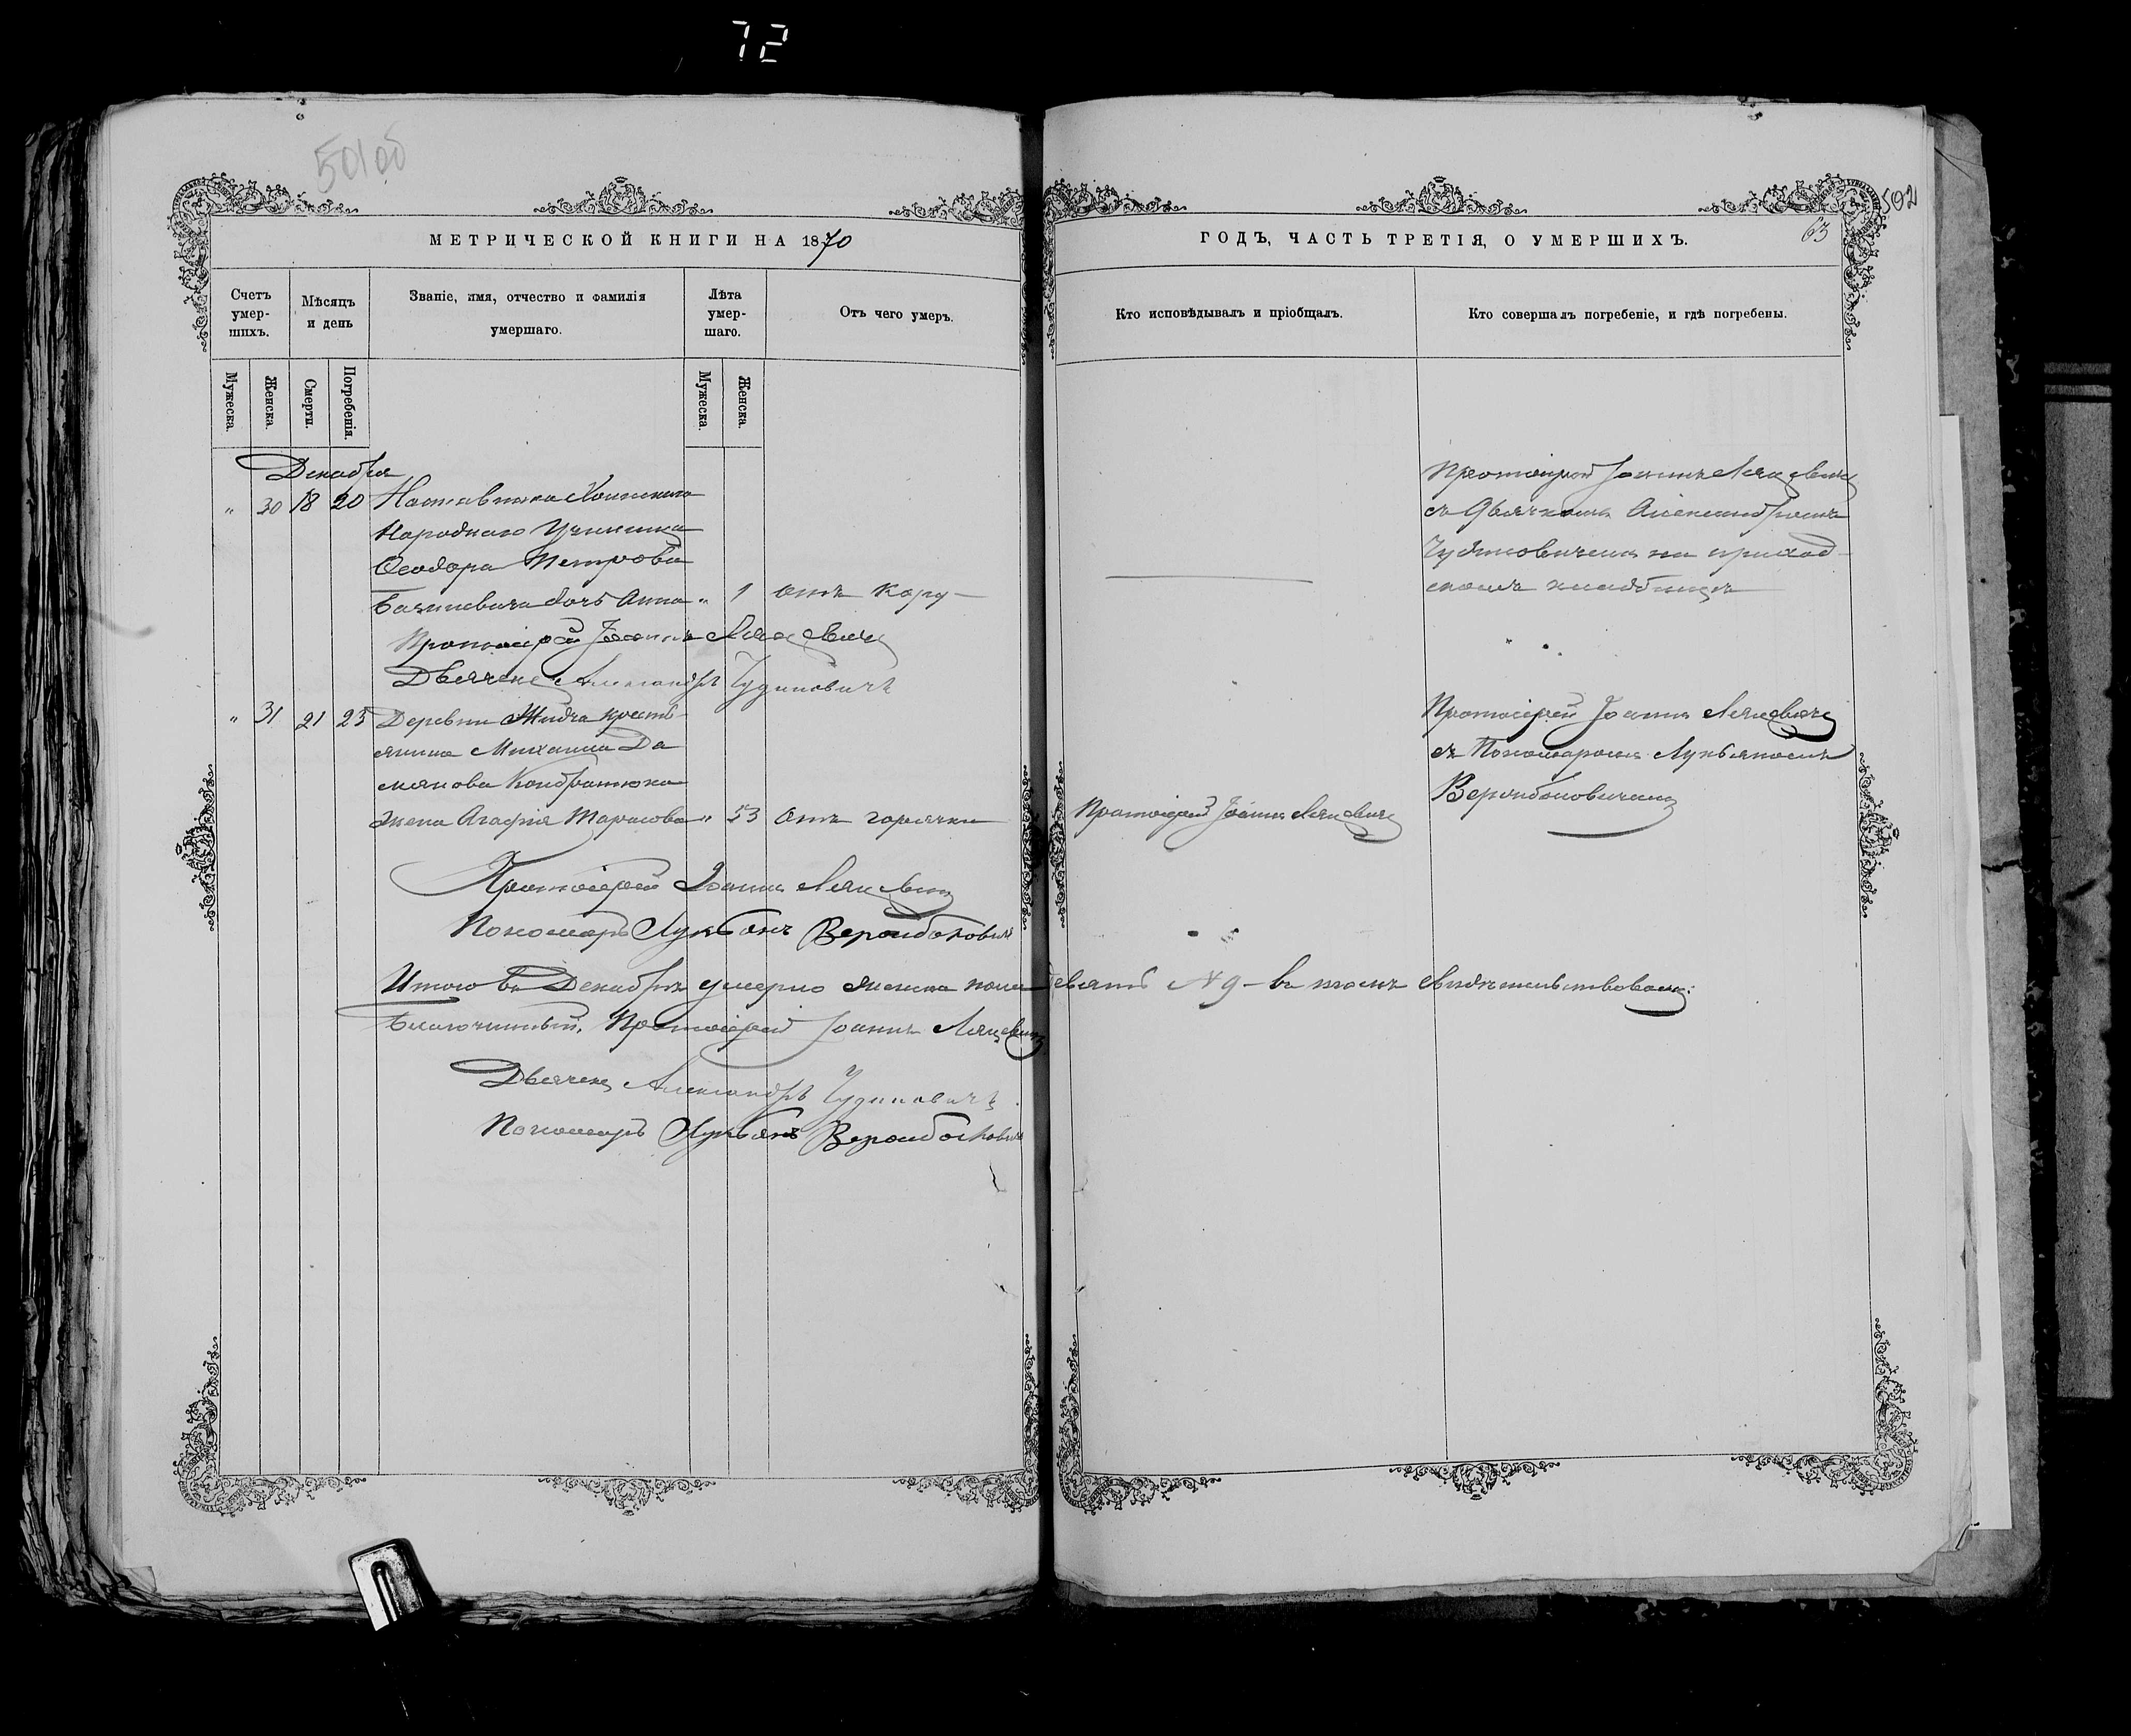 72
501 об
502
МЕТРИЧЕСКОЙ КНИГИ НА 1870
ГОДЪ, ЧАСТЬ ТРЕТІЯ, О УМЕРШИХЪ.
63
Счетъ умер-
шихъ.
Мѣсяцъ
и день
Званіе, имя, отчество и фамилія
умершаго.
Лѣта
умер-
шаго.
Отъ чего умеръ.
Кто исповѣдывалъ и пріобщалъ.
Кто совершалъ погребеніе, и гдѣ погребены.
Мужеска.
Женска.
Смерти.
Погребенія.
Мужеска.
Женска.
Декабря
" 30 18 20 Наставника
Народнаго Училища
Ѳеодора Петрова
дочь Анна " 1 отъ кору
Протоіерей Іоаннъ Ляцевичъ
съ Дьячкомъ Александромъ
Чудиновичемъ на приход-
скомъ кладбищѣ
Протоіерей Іоаннъ Ляцевичъ
Дьячекъ Александръ Чудиновичъ
" 31 21 23 Деревни Жидча кресть-
янина Михаила Да
мянова Кондратюка
жена Агафія Тарасова " 53 отъ горячки
Протоіерей Іоаннъ Ляцевичъ
Протоіерей Іоаннъ Ляцевичъ
съ Пономаремъ Лукьяномъ
Протоіерей Іоаннъ Ляцевичъ
Пономарь Лукьянъ
Итого въ Декабрѣ умерло женска пола девять № 9 – въ томъ свидѣтельствовали:
Благочинный, Протоіерей Іоаннъ Ляцевичъ
Дьячекъ Александръ Чудиновичъ
Пономарь Лукьянъ